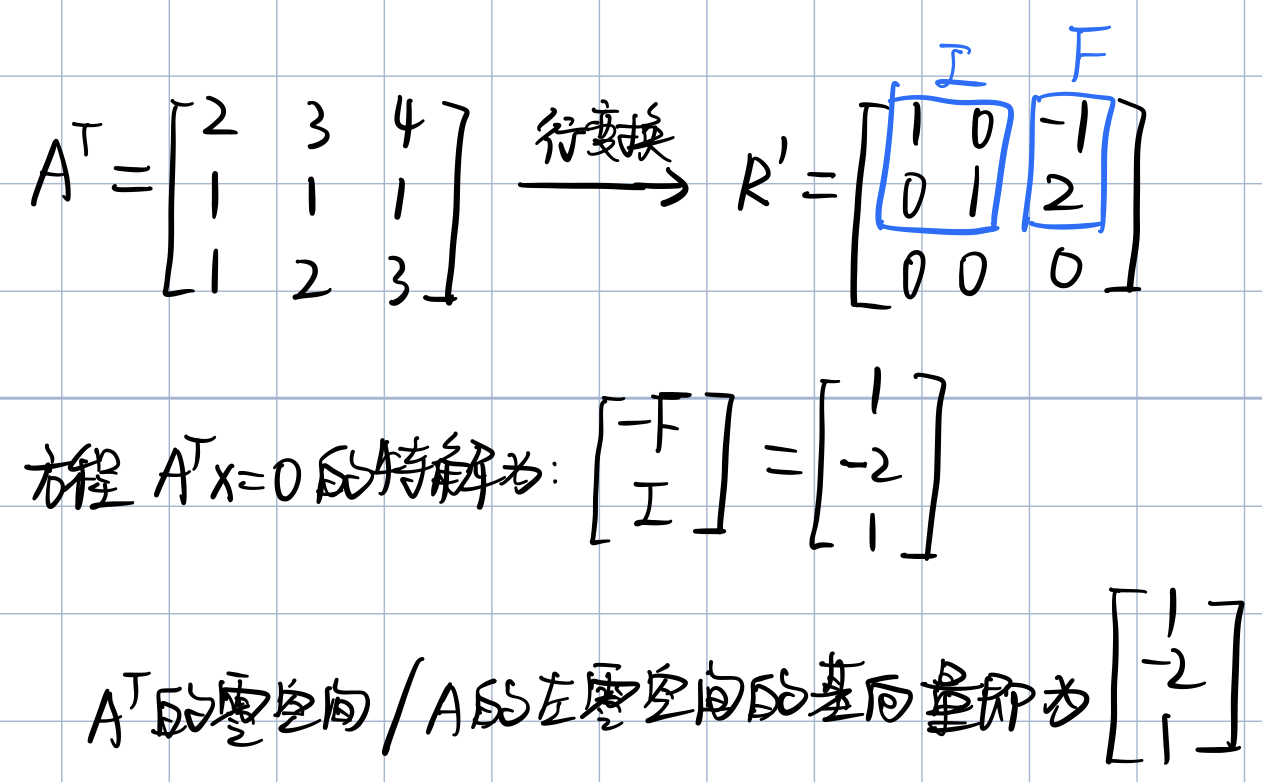 I F
A^T = [2 3 4; 1 1 1; 1 2 3] 行变换 → R' = [1 0 -1; 0 1 2; 0 0 0]
方程 A^T x=0 的特解为: [-F; I] = [1; -2; 1]
A^T的零空间/A的左零空间的基向量即为 [1; -2; 1]